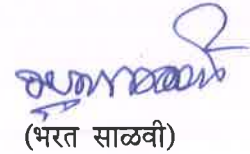 (भरत साळवी)